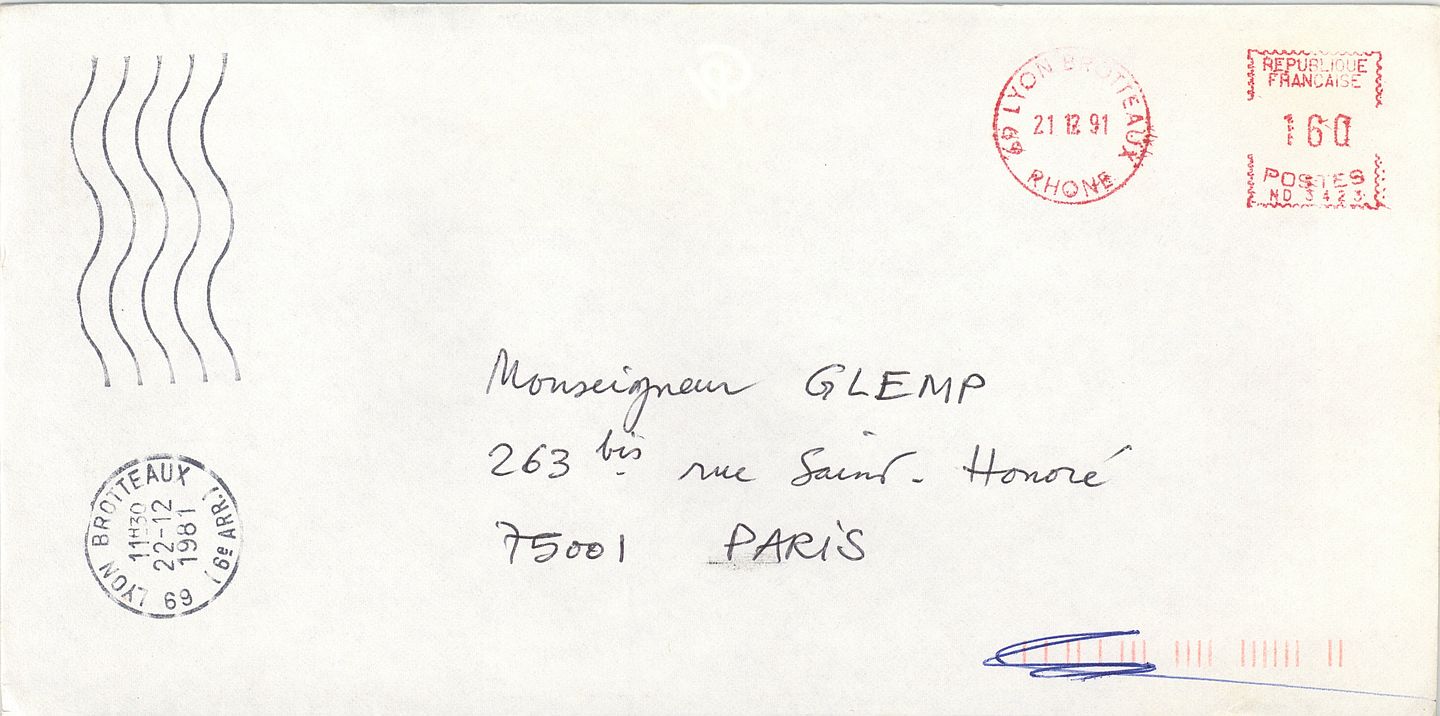 69 LYON BROTTEAUX
21 12 91
RHONE
REPUBLIQUE
FRANCAISE
160
POSTES
ND 3423
Monseigneur GLEMP
263 bis rue Saint-Honoré
75001 PARIS
LYON BROTTEAUX (6e ARR.)
11H30
22-12
1981
69